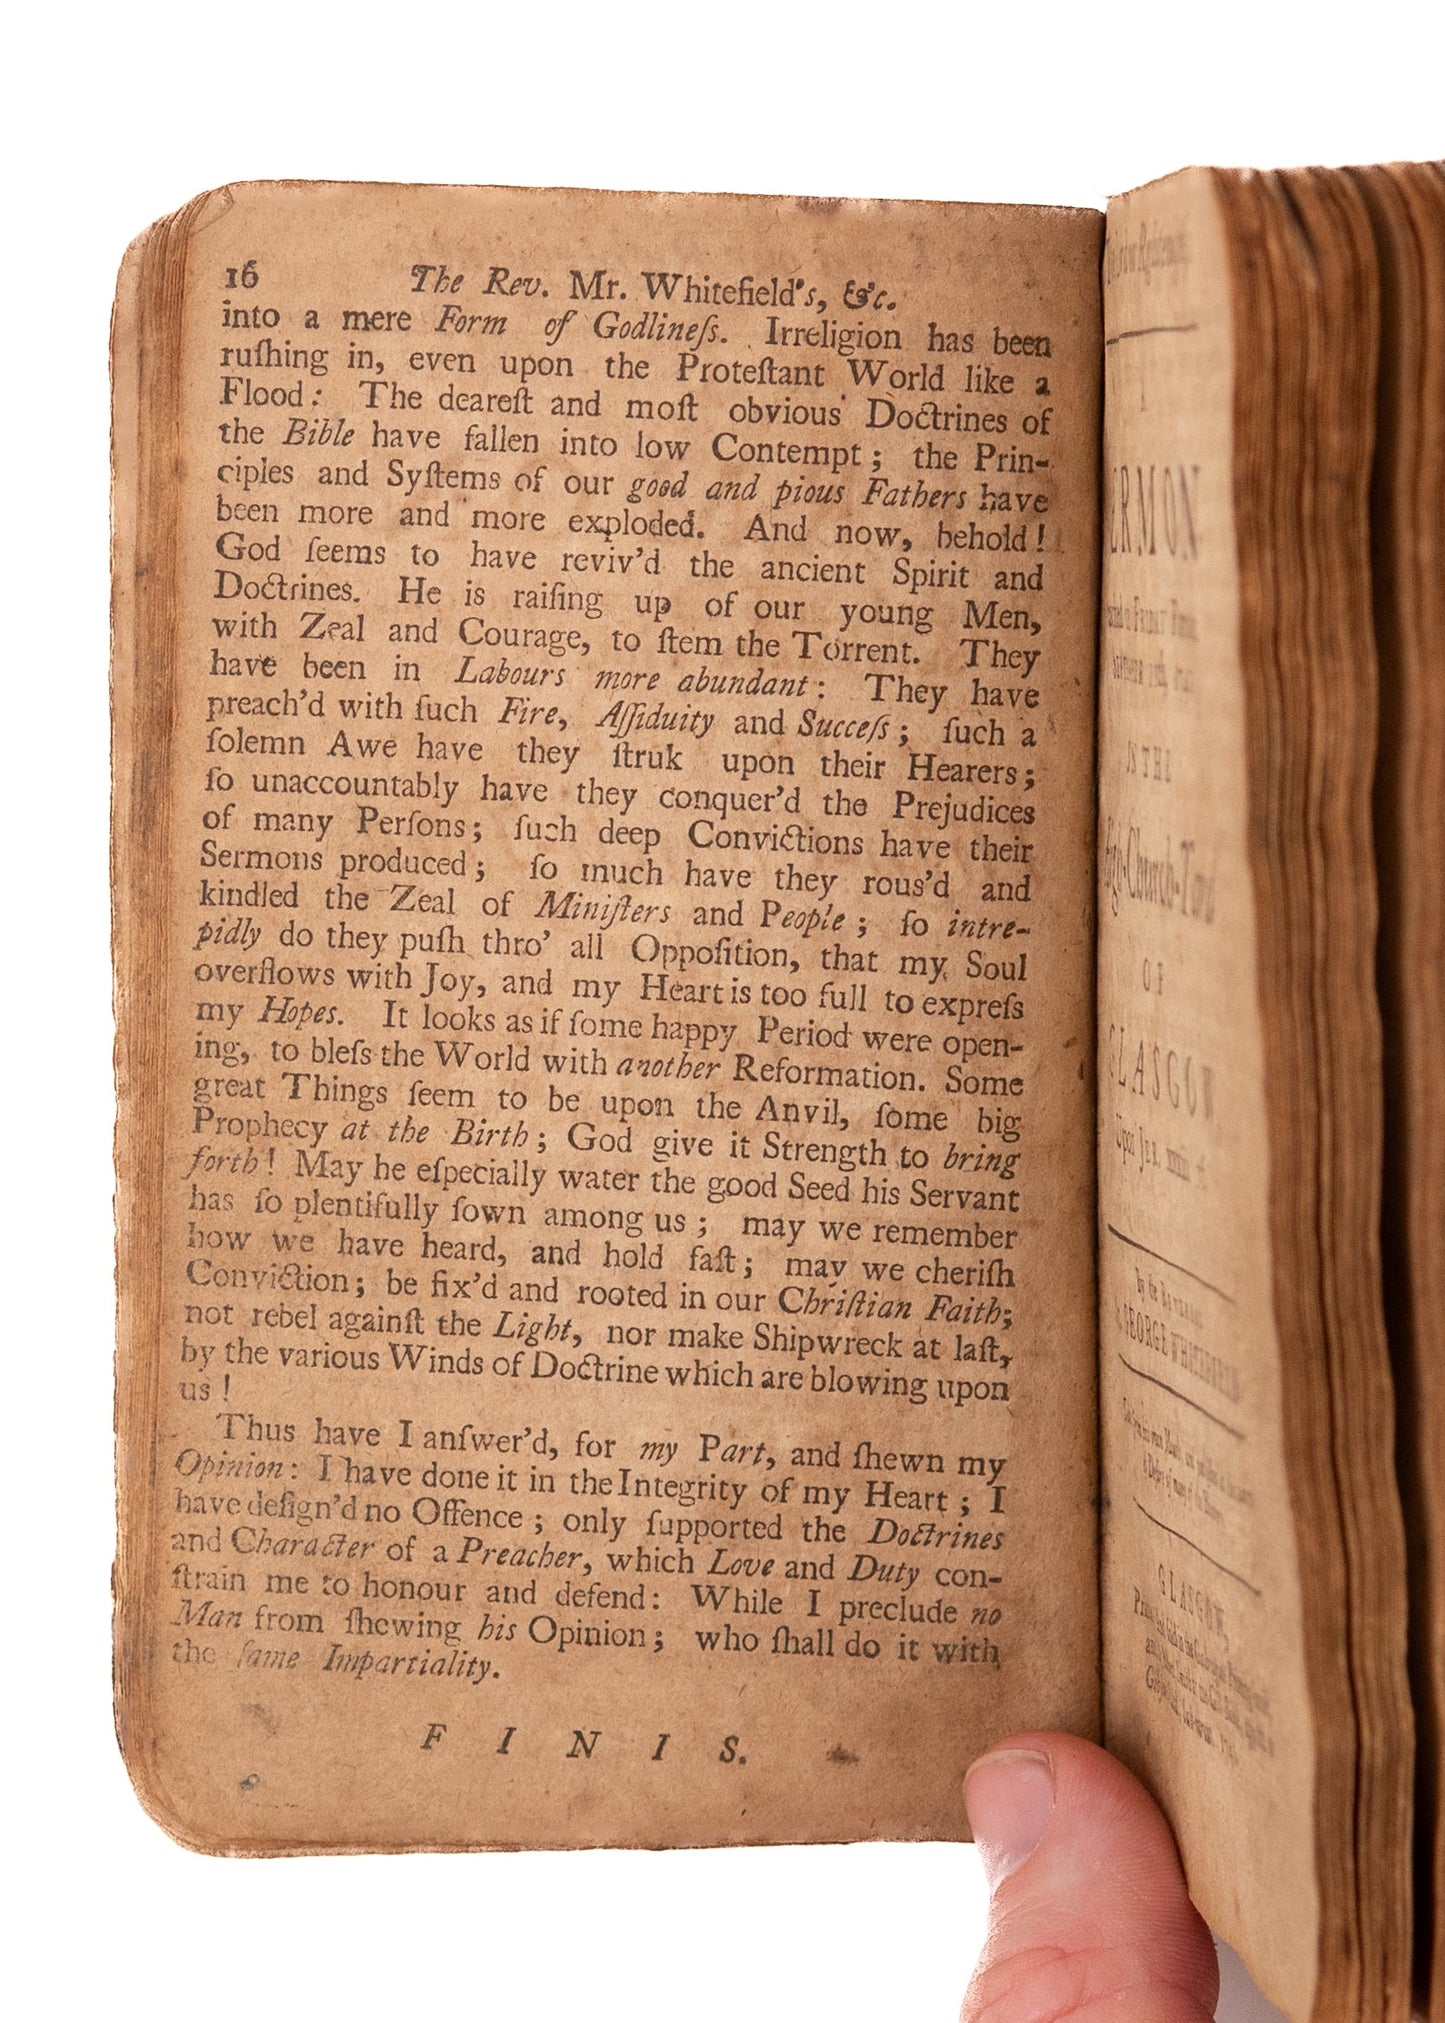 16 The Rev. Mr. Whitefield's, &c.
into a mere Form of Godlineſs. Irreligion has been
ruſhing in, even upon the Proteſtant World like a
Flood: The deareſt and moſt obvious Doctrines of
the Bible have fallen into low Contempt; the Prin-
ciples and Syſtems of our good and pious Fathers have
been more and more exploded. And now, behold!
God ſeems to have reviv'd the ancient Spirit and
Doctrines. He is raiſing up of our young Men,
with Zeal and Courage, to ſtem the Torrent. They
have been in Labours more abundant: They have
preach'd with ſuch Fire, Aſſiduity and Succeſs; ſuch a
ſolemn Awe have they ſtruk upon their Hearers;
ſo unaccountably have they conquer'd the Prejudices
of many Perſons; ſuch deep Convictions have their
Sermons produced; ſo much have they rous'd and
kindled the Zeal of Miniſters and People; ſo intre-
pidly do they puſh thro' all Oppoſition, that my Soul
overflows with Joy, and my Heart is too full to expreſs
my Hopes. It looks as if ſome happy Period were open-
ing, to bleſs the World with another Reformation. Some
great Things ſeem to be upon the Anvil, ſome big
Prophecy at the Birth; God give it Strength to bring
forth! May he eſpecially water the good Seed his Servant
has ſo plentifully ſown among us; may we remember
how we have heard, and hold faſt; may we cheriſh
Conviction; be fix'd and rooted in our Chriſtian Faith;
not rebel againſt the Light, nor make Shipwreck at laſt,
by the various Winds of Doctrine which are blowing upon
us!
Thus have I anſwer'd, for my Part, and ſhewn my
Opinion: I have done it in the Integrity of my Heart; I
have deſign'd no Offence; only ſupported the Doctrines
and Character of a Preacher, which Love and Duty con-
ſtrain me to honour and defend: While I preclude no
Man from ſhewing his Opinion; who ſhall do it with
the ſame Impartiality.
FINIS.
ERMON
OF
GLASGOW
GEORGE WHITEFIELD
GLASGOW,